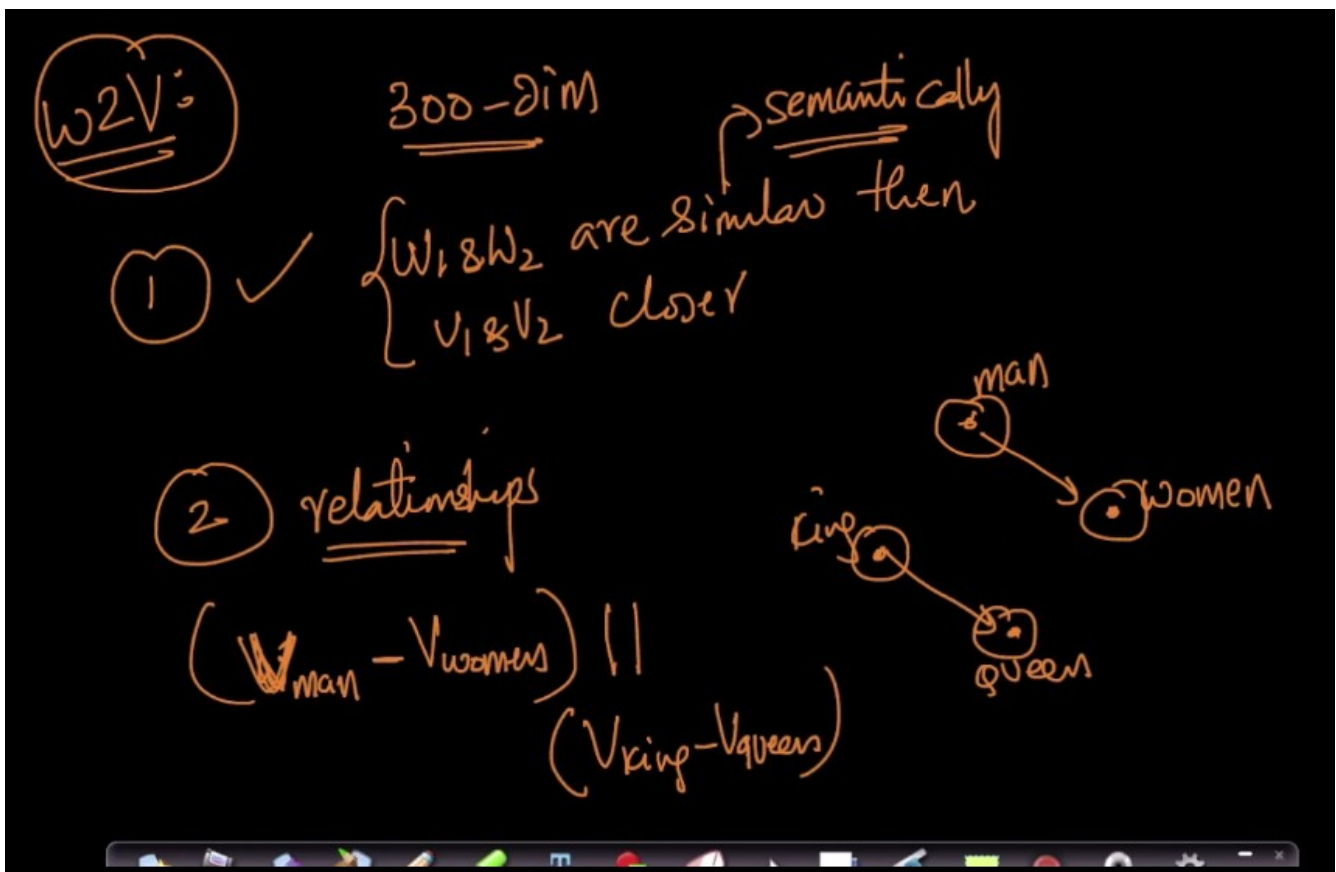 W2V:
300-dim
semantically
1 ✓ { W₁ & W₂ are similar then
V₁ & V₂ closer
man
women
king
queen
2 relationships
(Vman - Vwomen) ||
(Vking - Vqueen)